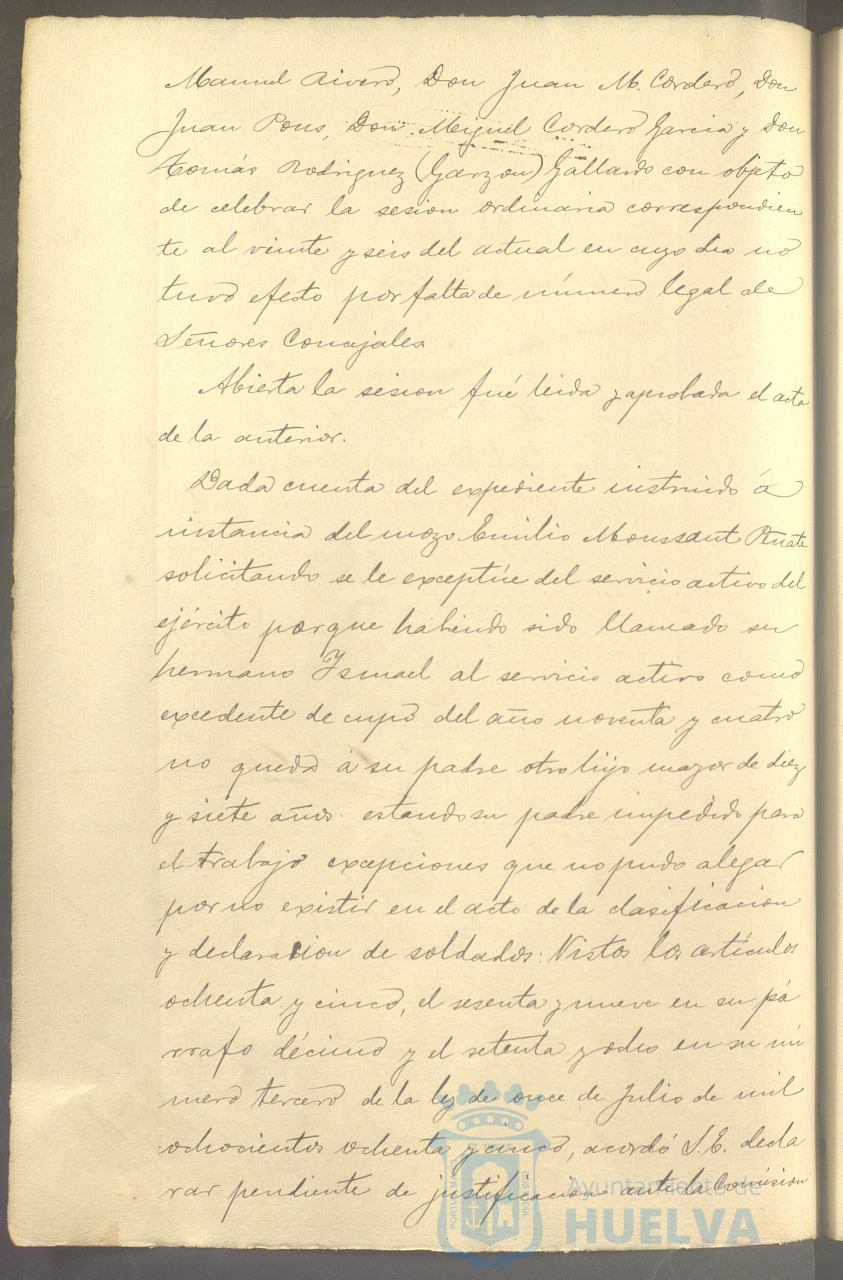 Manuel Rivero, Don Juan M. Cordero, Don
Juan Pons, Don Miguel Cordero Garcia y Don
Tomás Rodriguez (Garzon) Gallardo con objeto
de celebrar la sesion ordinaria correspondien
te al veinte y seis del actual en cuyo dia no
tuvo efecto por falta de número legal de
Señores Concejales
Abierta la sesion fué leida y aprobada el acta
de la anterior.
Dada cuenta del expediente instruido á
instancia del mozo Emilio Moussaut Peñate
solicitando se le exceptúe del servicio activo del
ejército porque habiendo sido llamado su
hermano Ismael al servicio activo como
excedente de cupo del año noventa y cuatro
no queda á su padre otro hijo mayor de diez
y siete años estando su padre impedido para
el trabajo excepciones que no pudo alegar
por no existir en el acto de la clasificacion
y declaracion de soldados: Vistos los artículos
ochenta y cinco, el sesenta y nueve en su pá
rrafo décimo y el setenta y ocho en su nú
mero tercero de la ley de once de Julio de mil
ochocientos ochenta y cinco, acordó S.E. decla
rar pendiente de justificacion ante la Comision
Ayuntamiento de
HUELVA